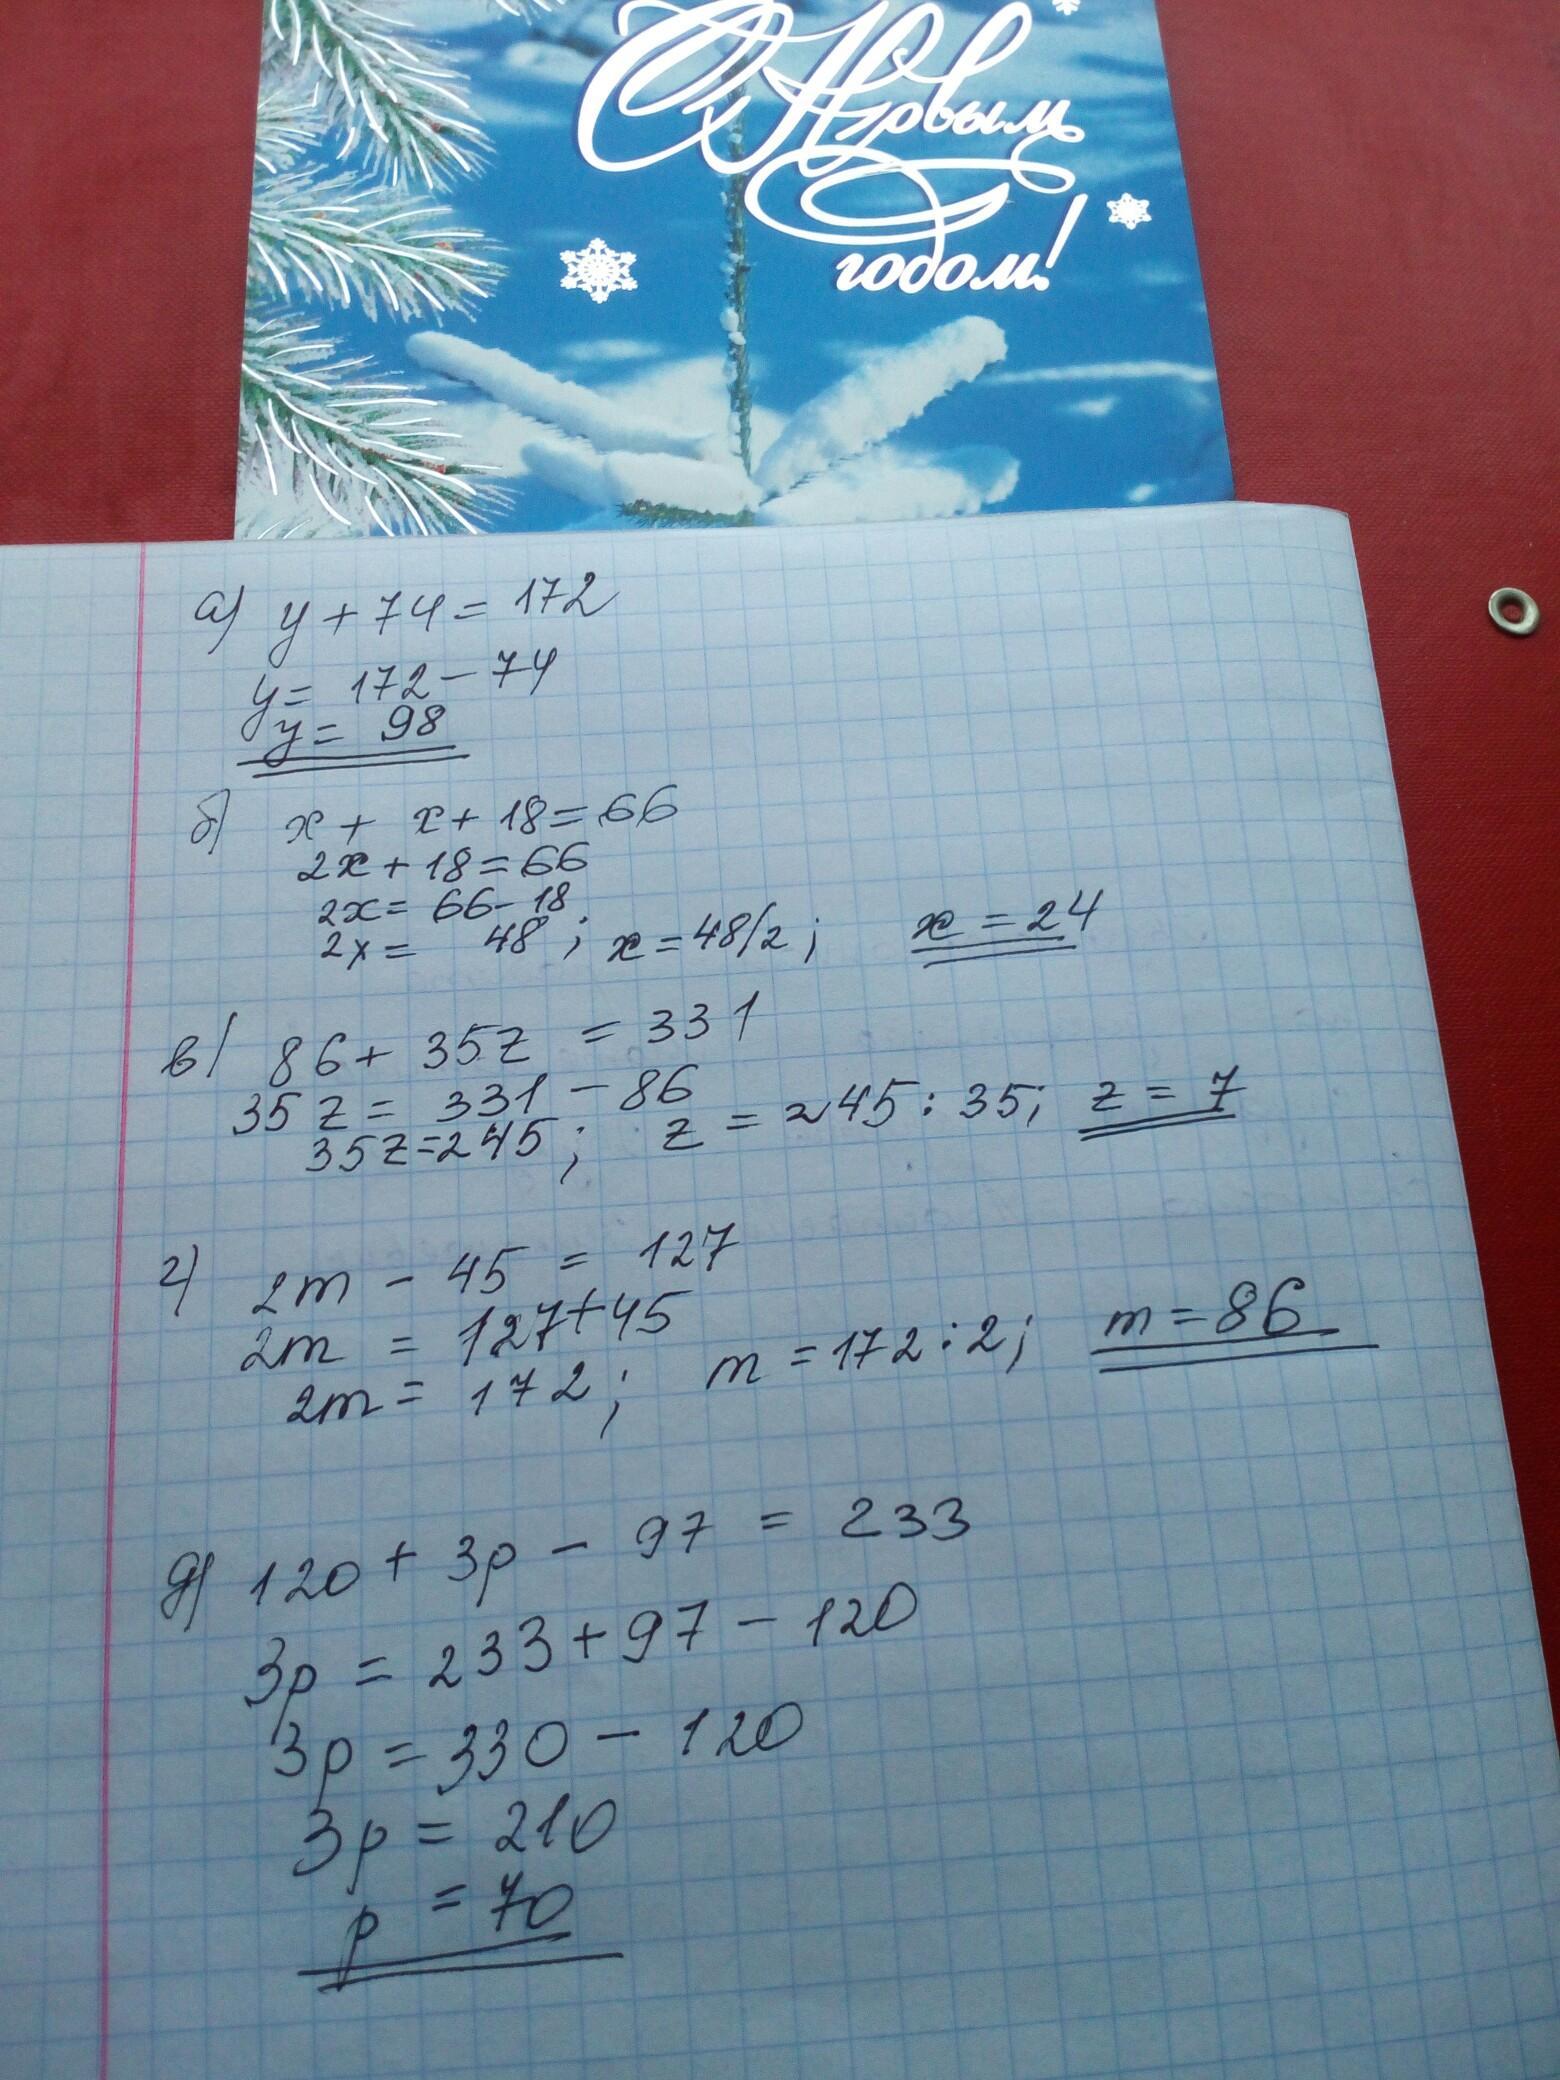 С Новым
годом!
а) y + 74 = 172
y = 172 - 74
y = 98
б) x + x + 18 = 66
2x + 18 = 66
2x = 66 - 18
2x = 48 ; x = 48/2 ; x = 24
в) 86 + 35z = 331
35z = 331 - 86
35z = 245 ; z = 245 : 35 ; z = 7
г) 2m - 45 = 127
2m = 127 + 45
2m = 172 ; m = 172 : 2 ; m = 86
д) 120 + 3p - 97 = 233
3p = 233 + 97 - 120
3p = 330 - 120
3p = 210
p = 70